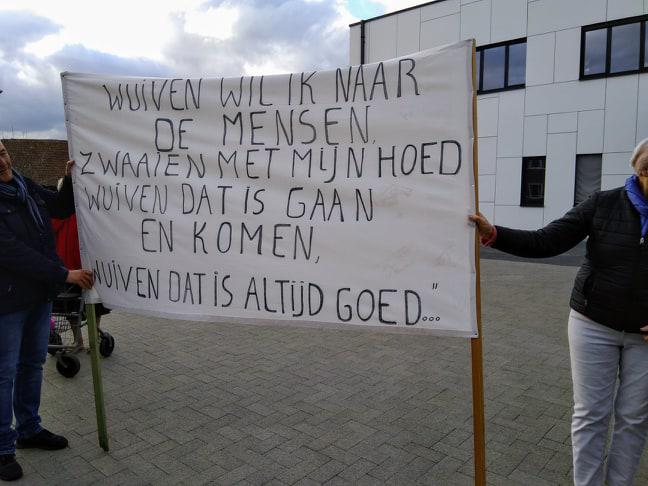 WUIVEN WIL IK NAAR
DE MENSEN,
ZWAAIEN MET MIJN HOED
WUIVEN DAT IS GAAN
EN KOMEN,
WUIVEN DAT IS ALTIJD GOED..."